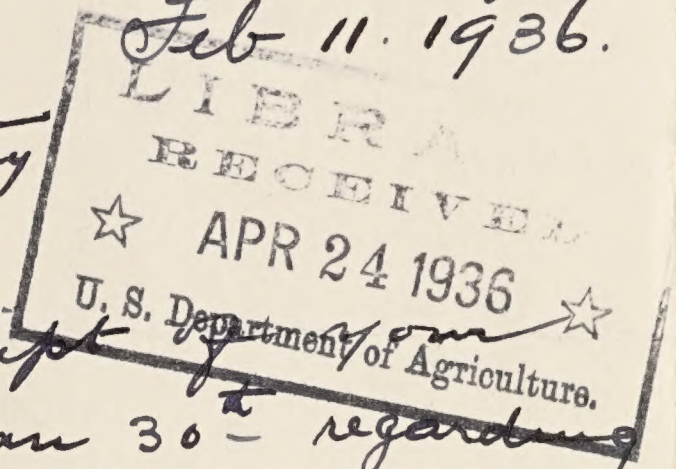 Feb 11. 1936.
LIBRA
RECEIVED
☆ APR 24 1936 ☆
U. S. Department of Agriculture.
y
pt of your
an 30th regarding